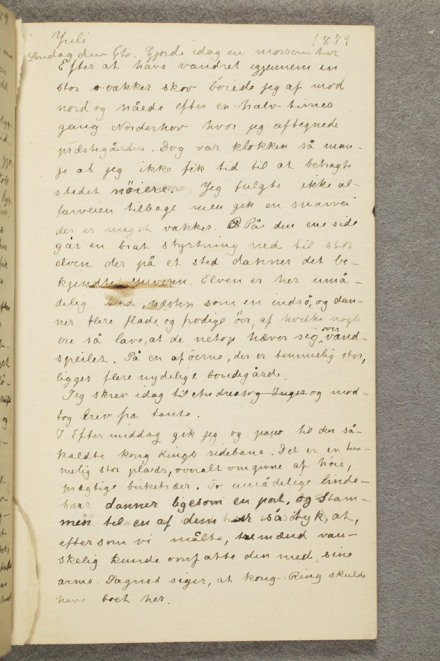 Juli 1879
Søndag den 6te. Gjorde idag en morsom tur
Efter at have vandret igjennem en
stor vakker skov bøiede jeg af mod
nord og nåede efter en halv times
gang Norderhov hvor jeg aftegnede
præstegården. Dog var klokken så man-
ge at jeg ikke fik tid til at betragte
stedet nøiere. Jeg fulgte ikke al-
farveien tilbage men gik en snarvei
der er meget vakker. På den ene side
går en brat styrtning ned til stor
elven der på et sted danner det be-
kjendte juveren. Elven er her umå-
delig bred næsten som en indsø, og dan-
ner flere flade, og frodige øer, af hvilke nogle
ere så lave, at de netop hæver sig over vand-
speilet. På en af øerne, der er temmelig stor,
ligger flere nydelige bondegårde.
Jeg skrev idag til Andreas og Inga og mod-
tog brev fra tante.
I Eftermiddag gik jeg og papa til den så-
kaldte kong Rings redebane. Det er en tem-
melig stor plads, overalt omgivne af høie,
prægtige birketræer. To umådelige linde-
træer danner ligesom en port, og Stam-
men til en af dem er så tyk, at,
eftersom vi målte, to mænd van-
skelig kunde omfatte den med sine
arme. Sagnet siger, at kong Ring skulde
have boet her.